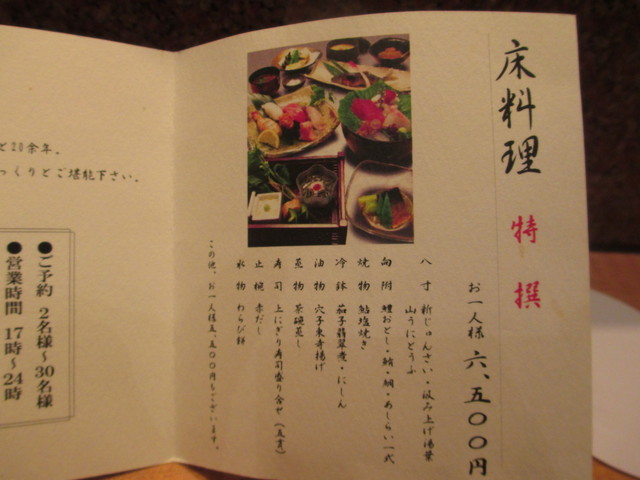 床料理 特撰
お一人様 六、五〇〇円
八寸 新じゅんさい・汲み上げ湯葉
山うにとうふ
向附 鱧おとし・鮪・鯛・あしらい一式
焼物 鮎塩焼き
冷鉢 茄子翡翠煮・にしん
油物 穴子東寺揚げ
蒸物 茶碗蒸し
寿司 上にぎり寿司盛り合せ(五貫)
止椀 赤だし
水物 わらび餅
この他、お一人様五、五〇〇円もございます。
ど20余年。
っくりとご堪能下さい。
●ご予約 2名様〜30名様
●営業時間 17時〜24時